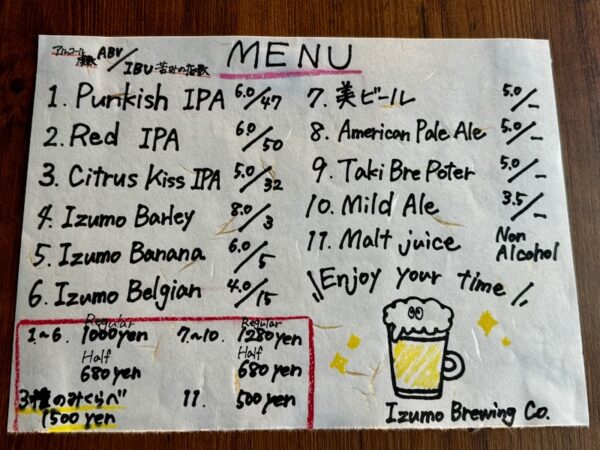 アルコール度数 ABV/IBU 苦みの指数
MENU
1. Punkish IPA 6.0/47
2. Red IPA 6.0/50
3. Citrus Kiss IPA 5.0/32
4. Izumo Barley 8.0/3
5. Izumo Banana 6.0/5
6. Izumo Belgian 4.0/15
7. 美ビール 5.0/-
8. American Pale Ale 5.0/-
9. Taki Bre Poter 5.0/-
10. Mild Ale 3.5/-
11. Malt juice Non Alcohol
\\Enjoy your time//
1.~6. Regular 1000yen
Half 680yen
3種のみくらべ 1500yen
7.~10. Regular 1280yen
Half 680yen
11. 500yen
Izumo Brewing Co.